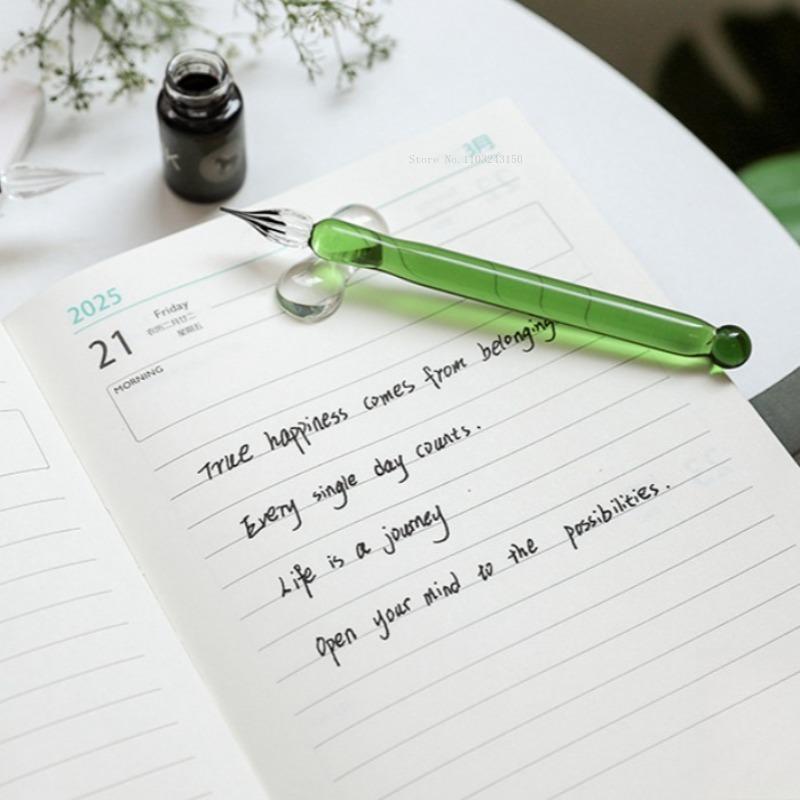 Store No.1103243150
3月
2025
21
Friday
农历二月廿二
星期五
MORNING
True happiness comes from belonging
Every single day counts.
Life is a journey
Open your mind to the possibilities.